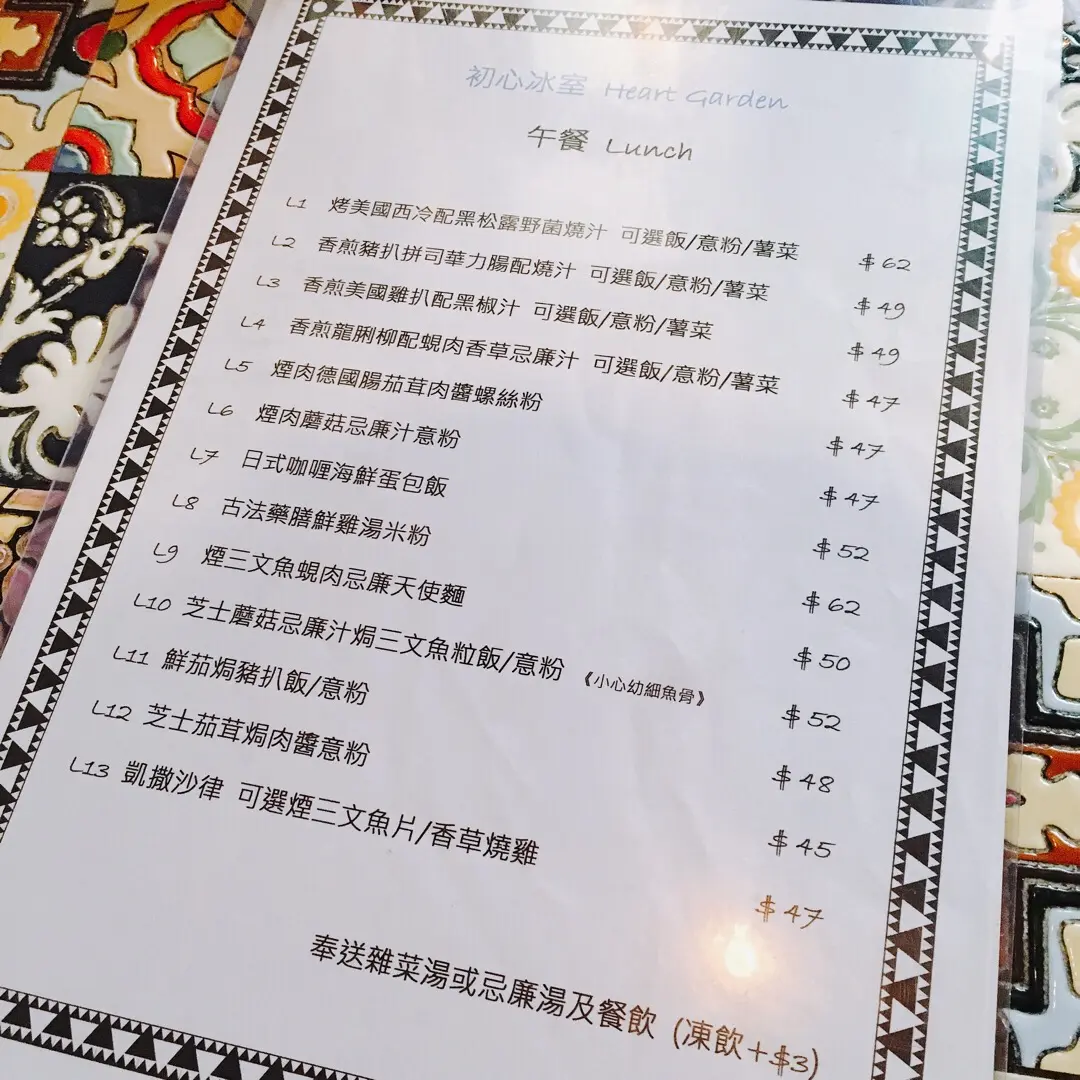 初心冰室 Heart Garden
午餐 Lunch
L1 烤美國西冷配黑松露野菌燒汁 可選飯/意粉/薯菜 $62
L2 香煎豬扒拼司華力腸配燒汁 可選飯/意粉/薯菜 $49
L3 香煎美國雞扒配黑椒汁 可選飯/意粉/薯菜 $49
L4 香煎龍脷柳配蜆肉香草忌廉汁 可選飯/意粉/薯菜 $47
L5 煙肉德國腸茄茸肉醬螺絲粉 $47
L6 煙肉蘑菇忌廉汁意粉 $47
L7 日式咖喱海鮮蛋包飯 $52
L8 古法藥膳鮮雞湯米粉 $62
L9 煙三文魚蜆肉忌廉天使麵 $50
L10 芝士蘑菇忌廉汁焗三文魚粒飯/意粉 《小心幼細魚骨》 $52
L11 鮮茄焗豬扒飯/意粉 $48
L12 芝士茄茸焗肉醬意粉 $45
L13 凱撒沙律 可選煙三文魚片/香草燒雞 $47
奉送雜菜湯或忌廉湯及餐飲 (凍飲+$3)